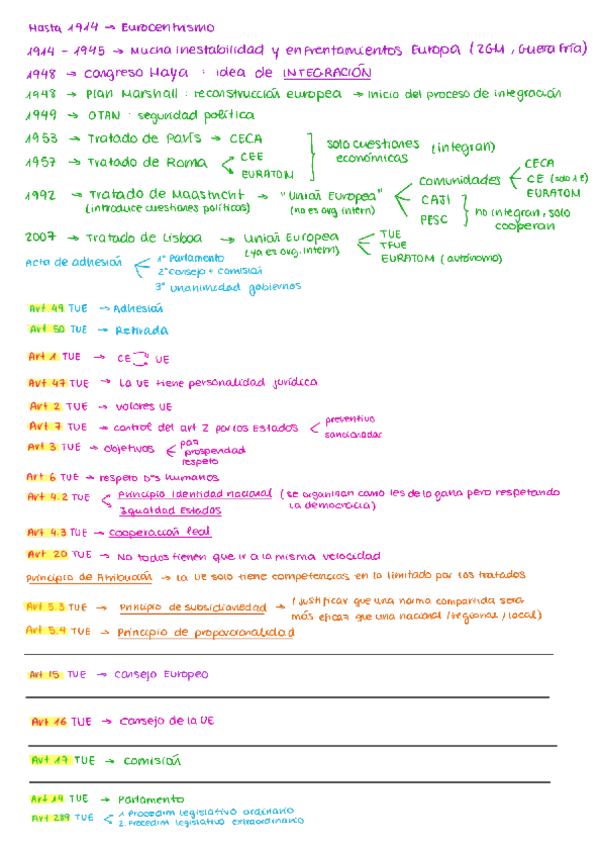 Hasta 1914 → Eurocentrismo
1914 - 1945 → Mucha inestabilidad y enfrentamientos Europa (2GM, Guerra Fría)
1948 → Congreso Haya : idea de INTEGRACIÓN
1948 → Plan Marshall : reconstrucción europea → Inicio del proceso de integración
1949 → OTAN : seguridad política
1953 → Tratado de París → CECA
solo cuestiones económicas (integran)
1957 → Tratado de Roma
CEE
EURATOM
1992 → Tratado de Maastricht → "Unión Europea"
(introduce cuestiones políticas) (no es org intern)
Comunidades
CECA
CE (solo 1 E)
EURATOM
CAJI
PESC
no integran, solo cooperan
2007 → Tratado de Lisboa → Unión Europea
(ya es org. intern)
TUE
TFUE
EURATOM (autónomo)
Acta de adhesión
1º Parlamento
2º Consejo + comisión
3º unanimidad gobiernos
Art 49 TUE → Adhesión
Art 50 TUE → Retirada
Art 1 TUE → CE UE
Art 47 TUE → La UE tiene personalidad jurídica
Art 2 TUE → valores UE
Art 7 TUE → control del art 2 por los Estados
preventivo
sancionador
Art 3 TUE → objetivos
paz
prosperidad
respeto
Art 6 TUE → respeto Dºs humanos
Art 4.2 TUE
Principio identidad nacional (se organizan como les de la gana pero respetando la democracia)
Igualdad Estados
Art 4.3 TUE → Cooperación leal
Art 20 TUE → No todos tienen que ir a la misma velocidad
Principio de Atribución → La UE solo tiene competencias en lo limitado por los tratados
Art 5.3 TUE → Principio de subsidiariedad → (Justificar que una norma compartida será más eficaz que una nacional / regional / local)
Art 5.4 TUE → Principio de proporcionalidad
Art 15 TUE → Consejo Europeo
Art 16 TUE → Consejo de la UE
Art 17 TUE → Comisión
Art 14 TUE → Parlamento
Art 289 TUE
1. Procedim legislativo ordinario
2. Procedim legislativo extraordinario